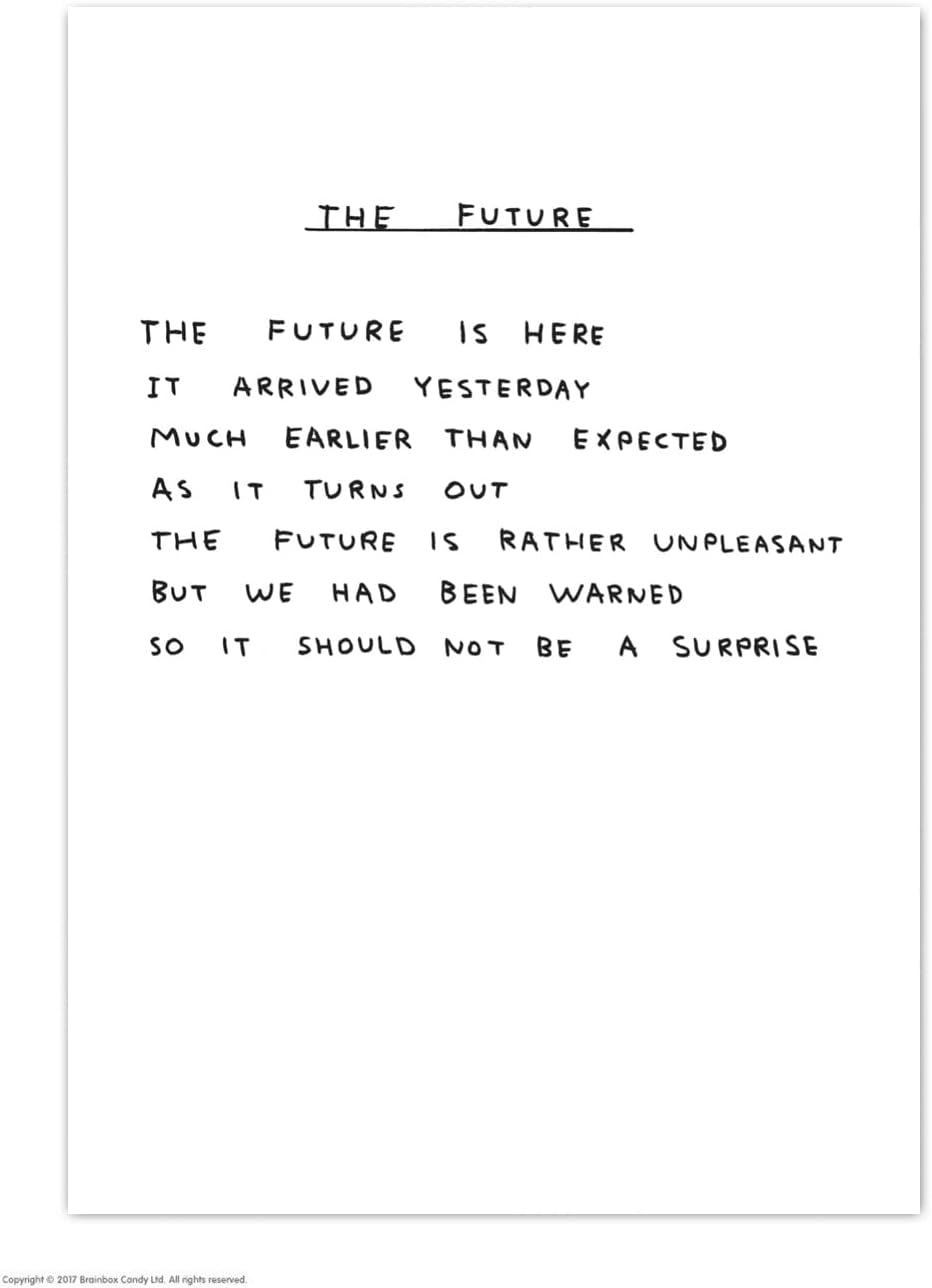 THE FUTURE
THE FUTURE IS HERE
IT ARRIVED YESTERDAY
MUCH EARLIER THAN EXPECTED
AS IT TURNS OUT
THE FUTURE IS RATHER UNPLEASANT
BUT WE HAD BEEN WARNED
SO IT SHOULD NOT BE A SURPRISE
Copyright © 2017 Brainbox Candy Ltd. All rights reserved.